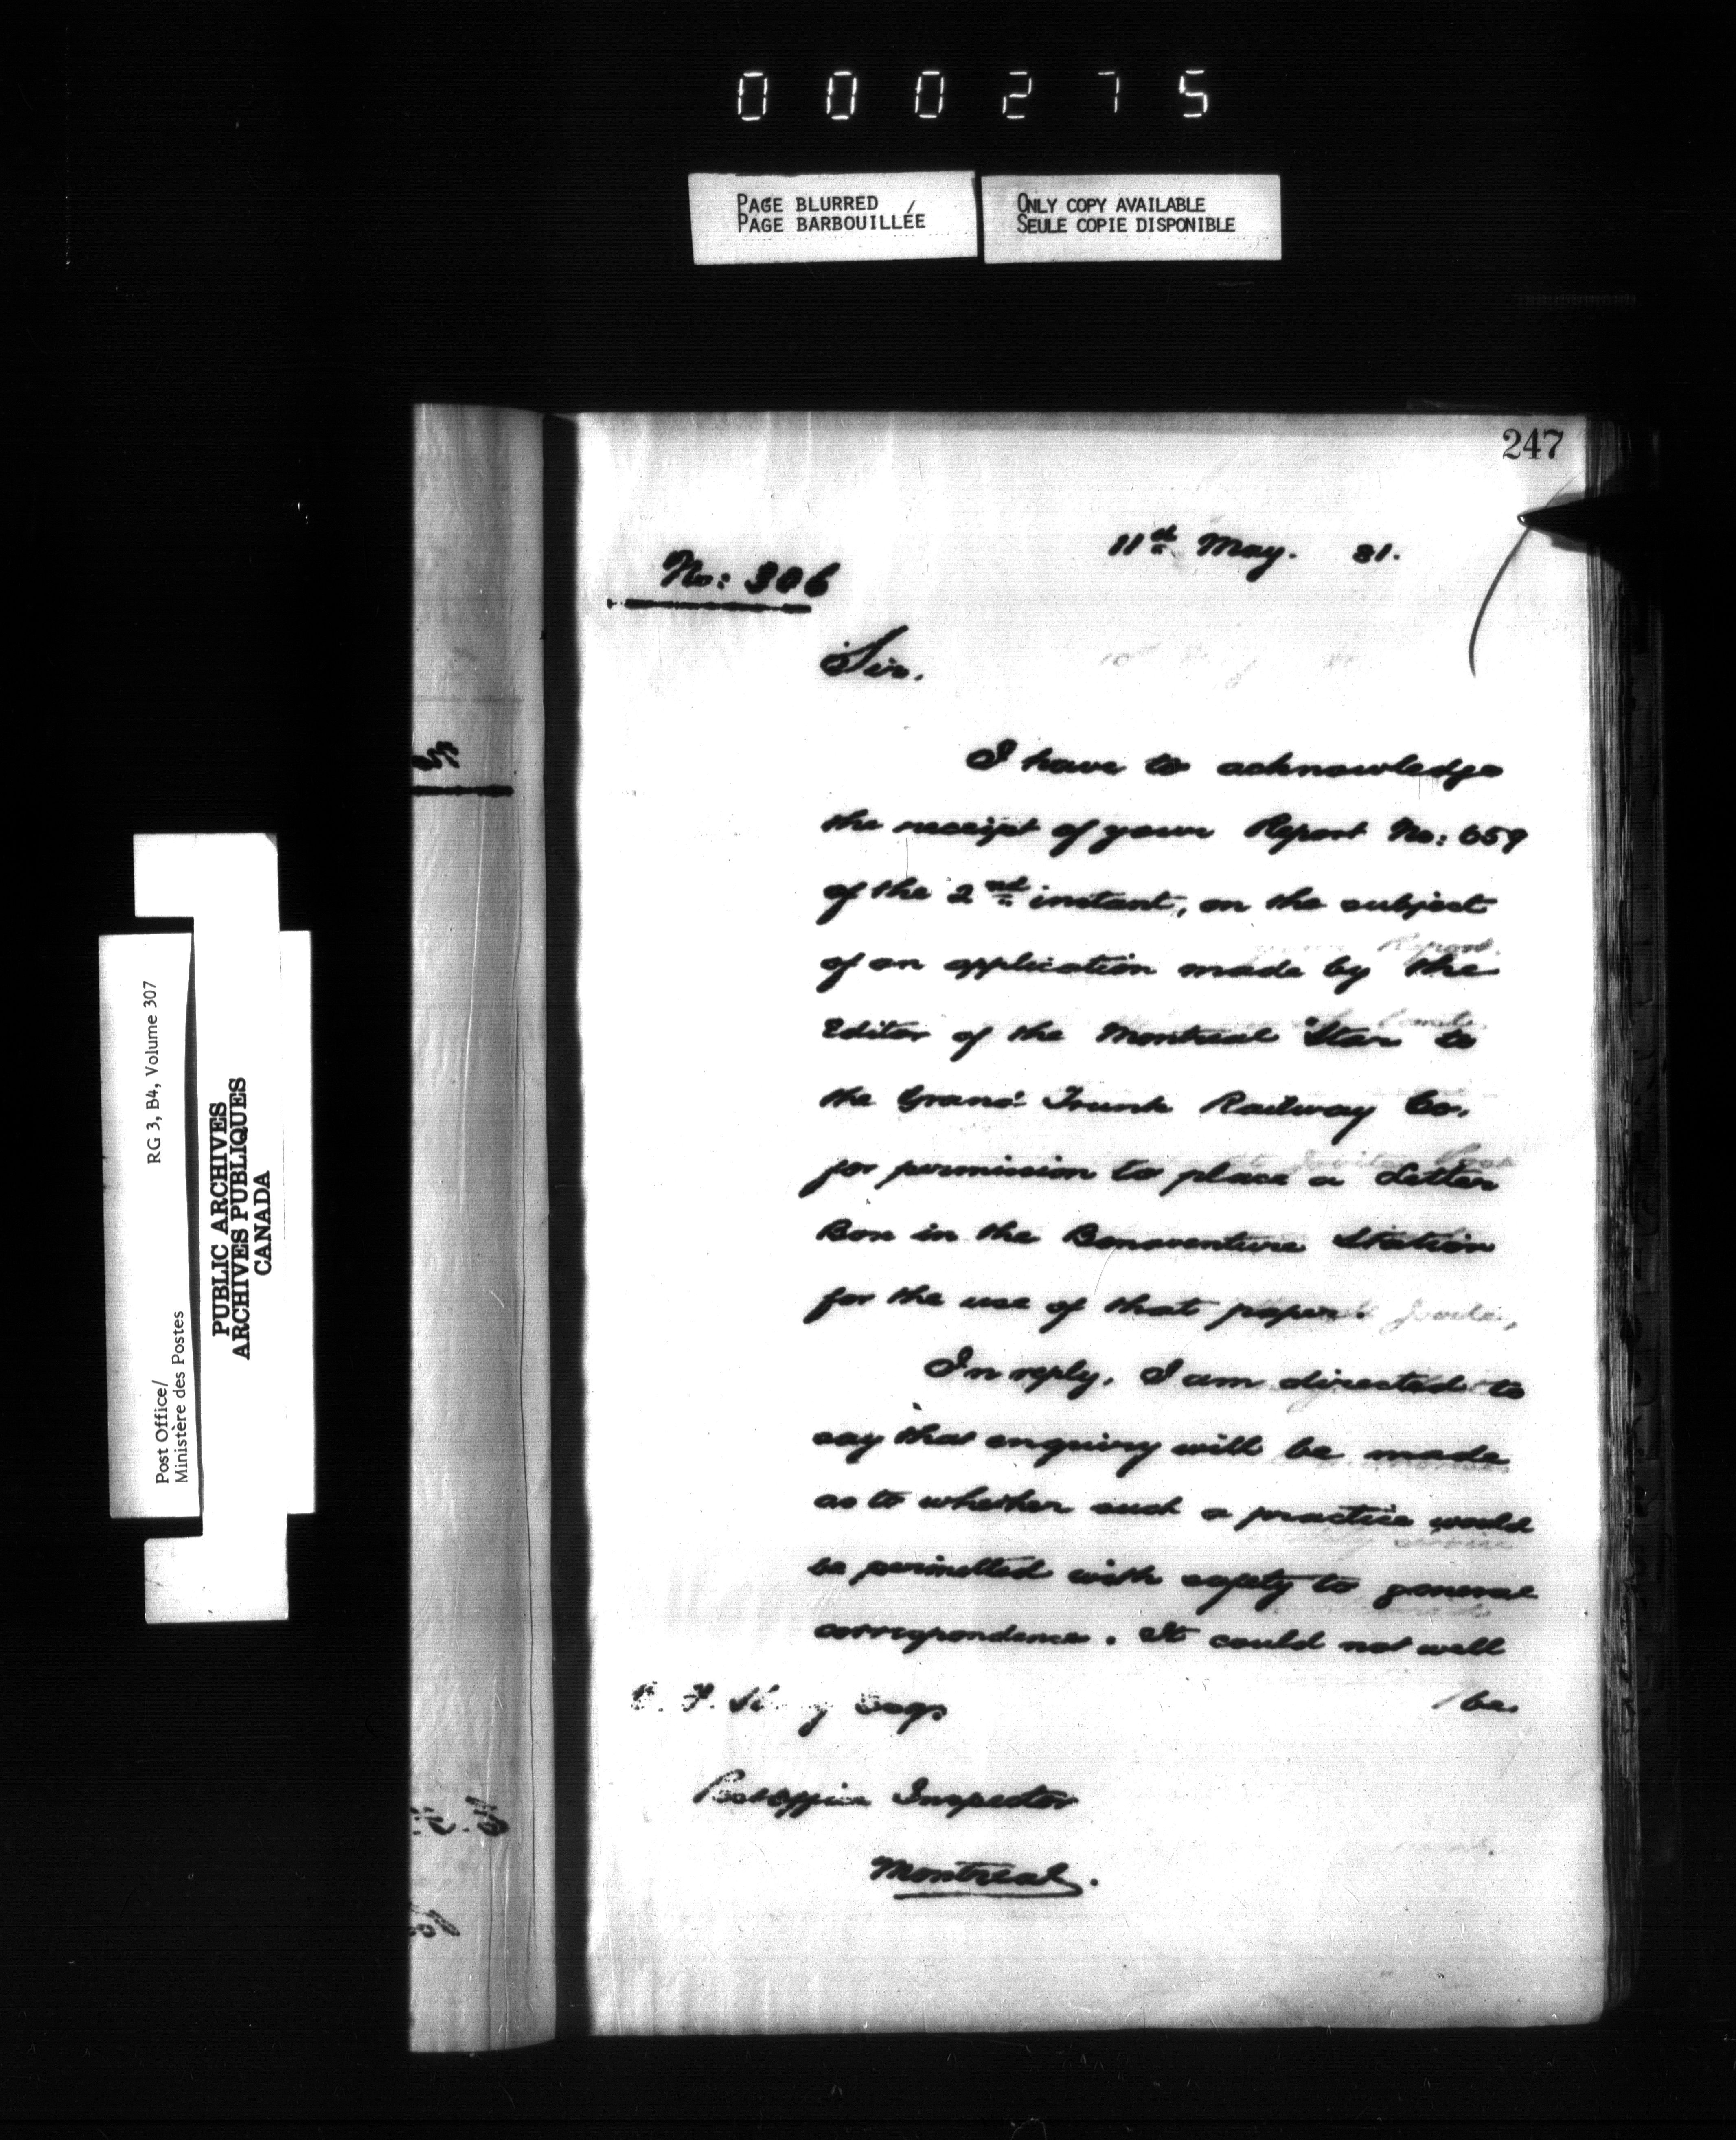 000275
PAGE BLURRED
PAGE BARBOUILLÉE
ONLY COPY AVAILABLE
SEULE COPIE DISPONIBLE
247
11th May. 81.
No: 306
Sir.
I have to acknowledge
the receipt of your Report No: 659
of the 2nd instant, on the subject
of an application made by the
Editor of the Montreal Star to
the Grand Trunk Railway Co.
for permission to place a Letter
Box in the Bonaventure Station
for the use of that paper.
In reply, I am directed to
say that enquiry will be made
as to whether such a practice would
be permitted with safety to general
correspondence. It could not well
/be
F. Esq.
Post Office Inspector
Montreal.
Post Office/
Ministère des Postes
RG 3, B4, Volume 307
PUBLIC ARCHIVES
ARCHIVES PUBLIQUES
CANADA